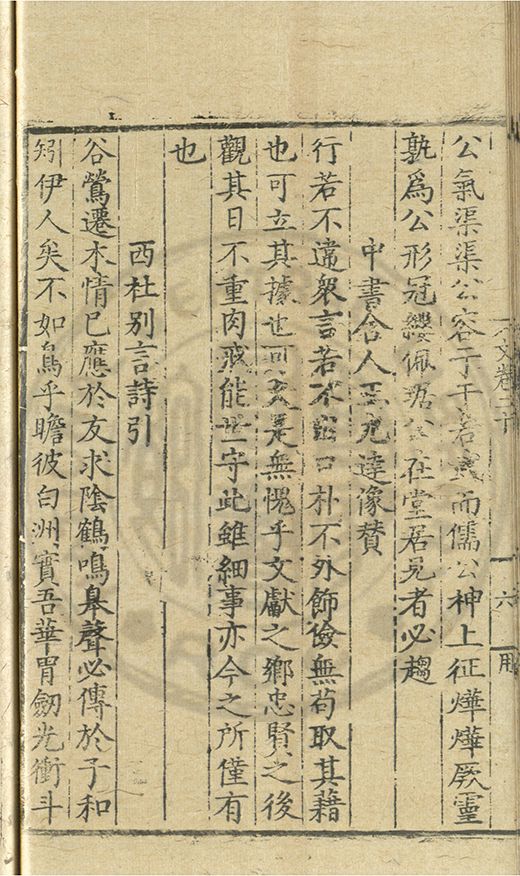 文卷二十 六 用
公氣渠渠公容于于若或而儒公神上征燁燁厥靈
孰爲公形冠纓佩琚公在堂居見者必趨
中書舍人王允達像贊
行若不違衆言若不出口朴不外飾儉無苟取其藉
也可立其據也可久是無愧乎文獻之鄉忠賢之後
觀其日不重肉戒能世守此雖細事亦今之所僅有
也
西杜別言詩引
谷鶯遷木情已應於友求陰鶴鳴臯聲必傳於子和
矧伊人矣不如鳥乎瞻彼白洲實吾華胄劒光衝斗